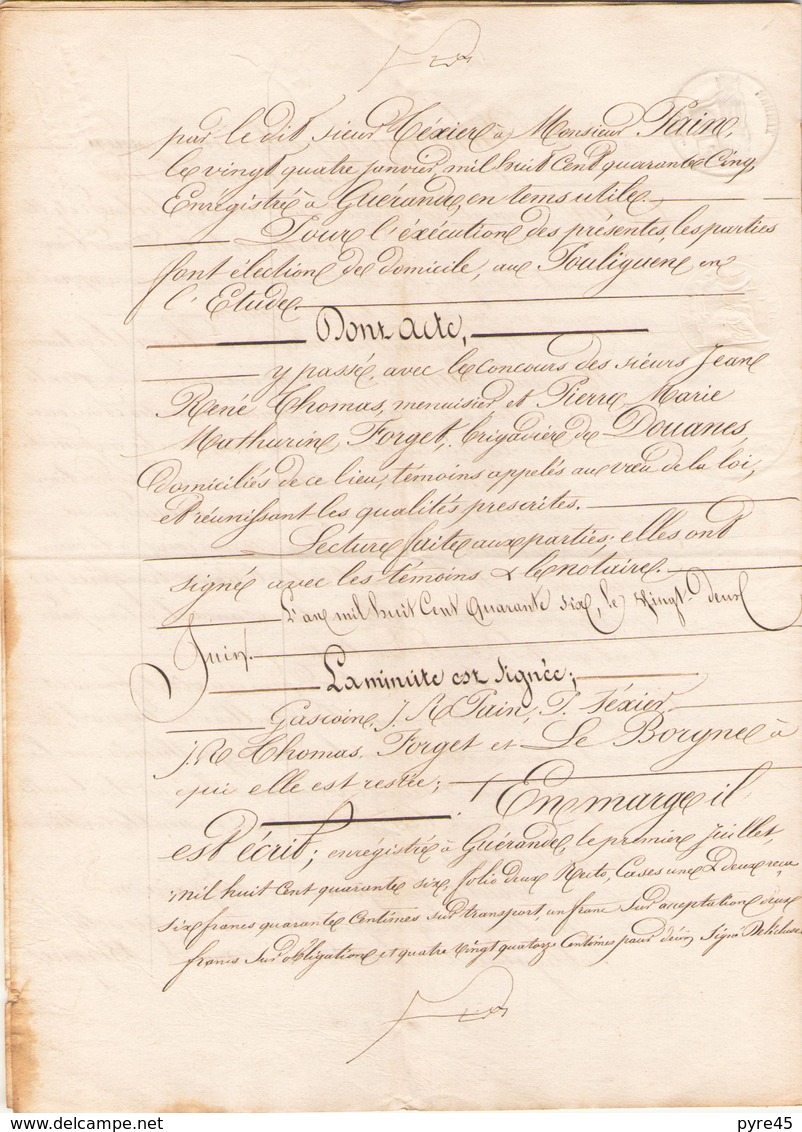 par le dit sieur Téxier à Monsieur Pain,
le vingt quatre janvier, mil huit cent quarante cinq,
Enregistré à Guérande, en tems utile.
Pour l'éxécution des présentes, les parties
font élection de domicile, au Pouliguen en
l'Etude.
Dont acte,
y passée, avec le concours des sieurs Jean
René Thomas, menuisier et Pierre Marie
Mathurin Forget, brigadier de Douanes,
domiciliés de ce lieu, témoins appelés au vœu de la loi,
et réunissant les qualités prescrites.
Lecture faite aux parties; elles ont
signé avec les témoins & le notaire.
L'an mil huit cent quarante six, le vingt-deux
Juin.
La minute est signée;
Gascoin, J. R. Pain, P. Téxier,
J. R. Thomas, Forget et Le Borgne à
qui elle est restée;
En marge il
est écrit; enregistré à Guérande, le premier Juillet,
mil huit cent quarante six, folio deux Recto, Cases une & deux reçu
six francs quarante centimes sur transport, un franc sur acceptation deux
francs sur obligation et quatre vingt quatorze centimes pour décime Signé
delcampe.net
pyre45